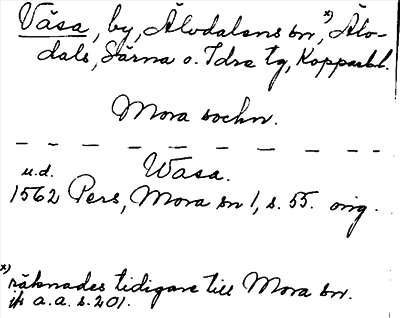 Våsa, by, Älvdalens sn,ˣ⁾ Älv-
dals, Särna o. Idre tg, Kopparb.l.
Mora sochn.
Wasa.
u.d.
1562 Pers, Mora sn 1, s. 55. orig.
x) räknades tidigare till Mora sn.
jfr a.a. s. 201.